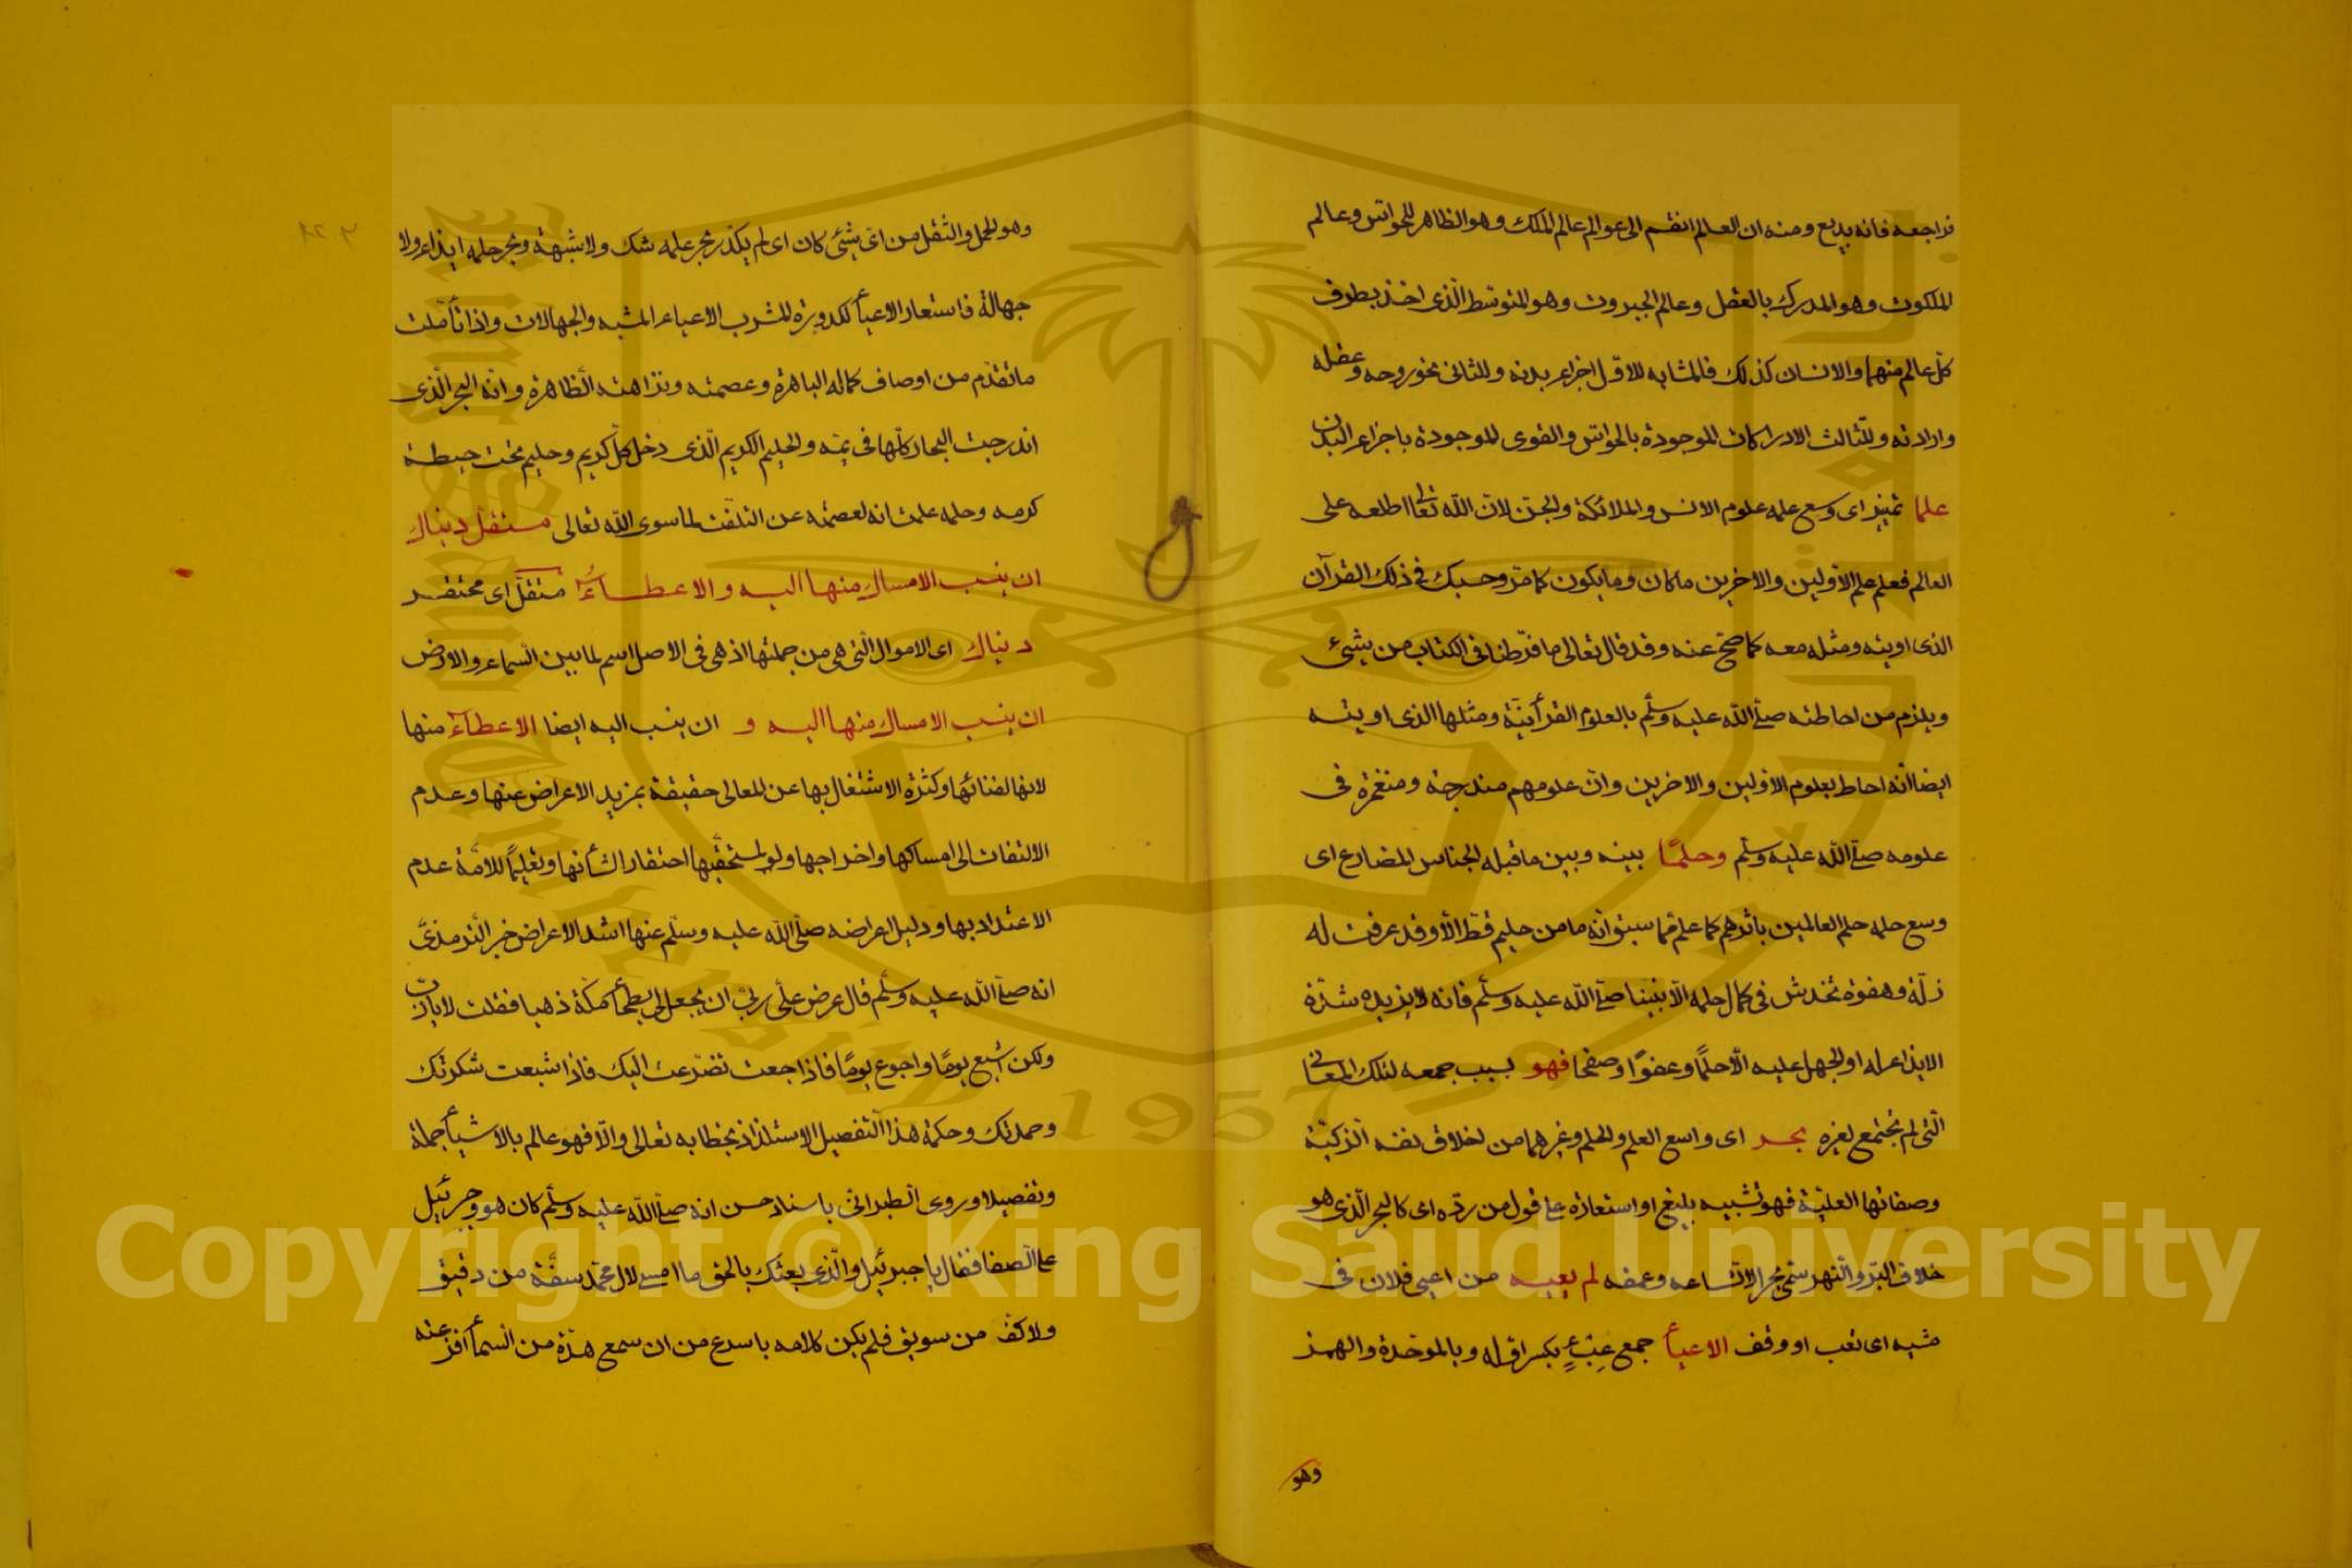 فراجعه فانه بديع ومنه ان العالم انقسم الى عوالم عالم الملك وهو الظاهر للحواس وعالم
الملكوت وهو المدرك بالعقل وعالم الجبروت وهو المتوسط الذى اخذ بطرف
كل عالم منهما والانسان كذلك فالمشابه للاول اجزاء بدنه وللثانى نحو روحه وعقله
وارادته وللثالث الادراكات الموجودة بالحواس والقوى الموجودة باجزاء البدن
علما تمييز اى وسع علمه علوم الانس والملائكة والجن لان الله تعالى اطلعه على
العالم فعلم علم الاولين والاخرين ما كان وما يكون كما مر وحسبك فى ذلك القرآن
الذى اوتيه ومثله معه كما صح عنه وقد قال تعالى ما فرطنا فى الكتاب من شئ
ويلزم من احاطته صلى الله عليه وسلم بالعلوم القرأنية ومثلها الذى اوتيه
ايضا انه احاط بعلوم الاولين والاخرين وان علومهم مندرجة ومنغمرة فى
علومه صلى الله عليه وسلم وحلمًا بينه وبين ما قبله الجناس المضارع اى
وسع حلمه حلم العالمين باثرهم كما علم مما سبق انه ما من حليم قط الا وقد عرفت له
زلة وهفوة تخدش فى كمال حلمه الا نبينا صلى الله عليه وسلم فانه لا يزيده شدة
الايذاء له او الجهل عليه الا حلمًا وعفوًا وصفحا فهو بسبب جمعه لتلك المعانى
التى لم تجتمع لغيره بحر اى واسع العلم والحلم وغيرهما من اخلاق نفسه الزكية
وصفاتها العلية فهو تشبيه بليغ او استعارة على قول من ردّه اى كالبحر الذى هو
خلاف البر والنهر سمى بحرا لاتساعه وعمقه لم يعيه من اعيى فلان فى
مشيه اى تعب او وقف الاعبأ جمع عِبْءٍ بكسر اوله وبالموحدة والهمز
وهو
وهو الحمل والثقل من اى شئ كان اى لم يكدر بحر علمه شك ولا شبهة وبحر حلمه ايذاء ولا
جهالة فاستعار الاعبأ لكدورة المشرب الاعباء المشبه والجهالات واذا تأملت
ما تقدم من اوصاف كماله الباهرة وعصمته ونزاهته الظاهرة وانه البحر الذى
اندرجت البحار كلها فى يمّه والحليم الكريم الذى دخل كل كريم وحليم تحت حيطة
كرمه وحلمه علمت انه لعصمته عن التلفت لما سوى الله تعالى مستقل دنياك
ان ينسب الامساك منها اليه والاعطــاءُ مستقل اى محتقـر
دنياك اى الاموال التى هى من جملتها اذ هى فى الاصل اسم لما بين السماء والارض
ان ينسب الامساك منها اليه و ان ينسب اليه ايضا الاعطآء منها
لانها لفنائها وكثرة الاشتغال بها عن المعالى حقيقة بمزيد الاعراض عنها وعدم
الالتفات الى امساكها واخراجها ولو لمستحقيها احتقارا لشأنها وتعليمًا للامة عدم
الاعتداد بها ودليل اعراضه صلى الله عليه وسلم عنها اشد الاعراض خبر الترمذى
انه صلى الله عليه وسلم قال عرض علىّ ربى ان يجعل لى بطحأ مكة ذهبا فقلت لا يا رب
ولكن اشبع يومًا واجوع يومًا فاذا جعت تضرعت اليك فاذا شبعت شكرتك
وحمدتك وحكمة هذا التفصيل الاستلذاذ بخطابه تعالى والا فهو عالم بالاشيأ جملة
وتفصيلا وروى الطبرانى باسناد حسن انه صلى الله عليه وسلم كان هو وجبرئيل
على الصفا فقال يا جبرئيل والذى بعثك بالحق ما امسى لال محمد سفّة من دقيق
ولا كفّ من سويق فلم يكن كلامه باسرع من ان سمع هدّة من السمأ افزعته
Copyright © King Saud University
1957